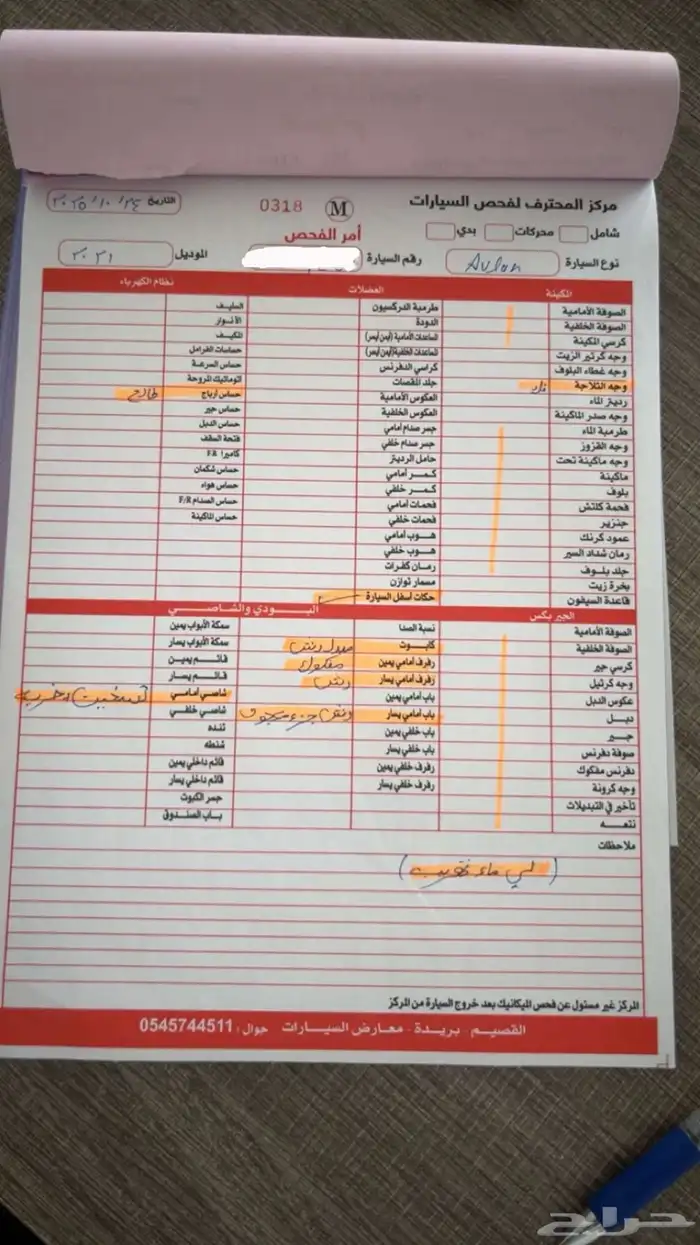 مركز المحترف لفحص السيارات
M
0318
التاريخ ٢٠٢٥/١٠/٢٤
شامل محركات بدي
أمر الفحص
نوع السيارة Avalon رقم السيارة الموديل ٢٠٢١
المكينة
الصوفة الأمامية
الصوفة الخلفية
كرسي المكينة
وجه كرتير الزيت
وجه غطاء البلوف
وجه الثلاجة
رديتر الماء
وجه صدر الماكينة
طرمبة الماء
وجه القزوز
وجه ماكينة تحت
ماكينة
بلوف
فحمة كلتش
جنزير
عمود كرنك
رمان شداد السير
جلد بلوف
بخرة زيت
قاعدة السيفون
العضلات
طرمبة الدركسيون
الدودة
المساعدات الأمامية (أيمن أيسر)
المساعدات الخلفية (أيمن أيسر)
كراسي الدفرنس
جلد المقصات
العكوس الأمامية
العكوس الخلفية
جسر صدام أمامي
جسر صدام خلفي
حامل الرديتر
كمر أمامي
كمر خلفي
فحمات أمامي
فحمات خلفي
هوب أمامي
هوب خلفي
رمان كفرات
مسمار توازن
حكات أسفل السيارة
نظام الكهرباء
السليف
الأنوار
المكيف
حساسات الفرامل
حساس السرعة
أتوماتيك المروحة
حساس أرباج طالع
حساس جير
حساس الدبل
فتحة السقف
كاميرا F/R
حساس شكمان
حساس هواء
حساس الصدام F/R
حساس الماكينة
الجير بكس
الصوفة الأمامية
الصوفة الخلفية
كرسي جير
وجه كرتيل
عكوس الدبل
دبل
جير
صوفة دفرنس
دفرنس مفكوك
وجه كرونة
تأخير في التبديلات
نتعه
البودي والشاصي
نسبة الصدا
كبوت مبدل رش
رفرف أمامي يمين مفكوك
رفرف أمامي يسار رش
باب أمامي يمين
باب أمامي يسار رش جزء معجون
باب خلفي يمين
باب خلفي يسار
رفرف خلفي يمين
رفرف خلفي يسار
سمكة الأبواب يمين
سمكة الأبواب يسار
قائم يمين
قائم يسار
شاصي أمامي
شاصي خلفي
تنده
شنطه
قائم داخلي يمين
قائم داخلي يسار
جسر الكبوت
باب الصندوق
ملاحظات
(لي ماء تهريب)
المركز غير مسئول عن فحص الميكانيك بعد خروج السيارة من المركز
القصيم - بريدة - معارض السيارات جوال : 0545744511
حراج